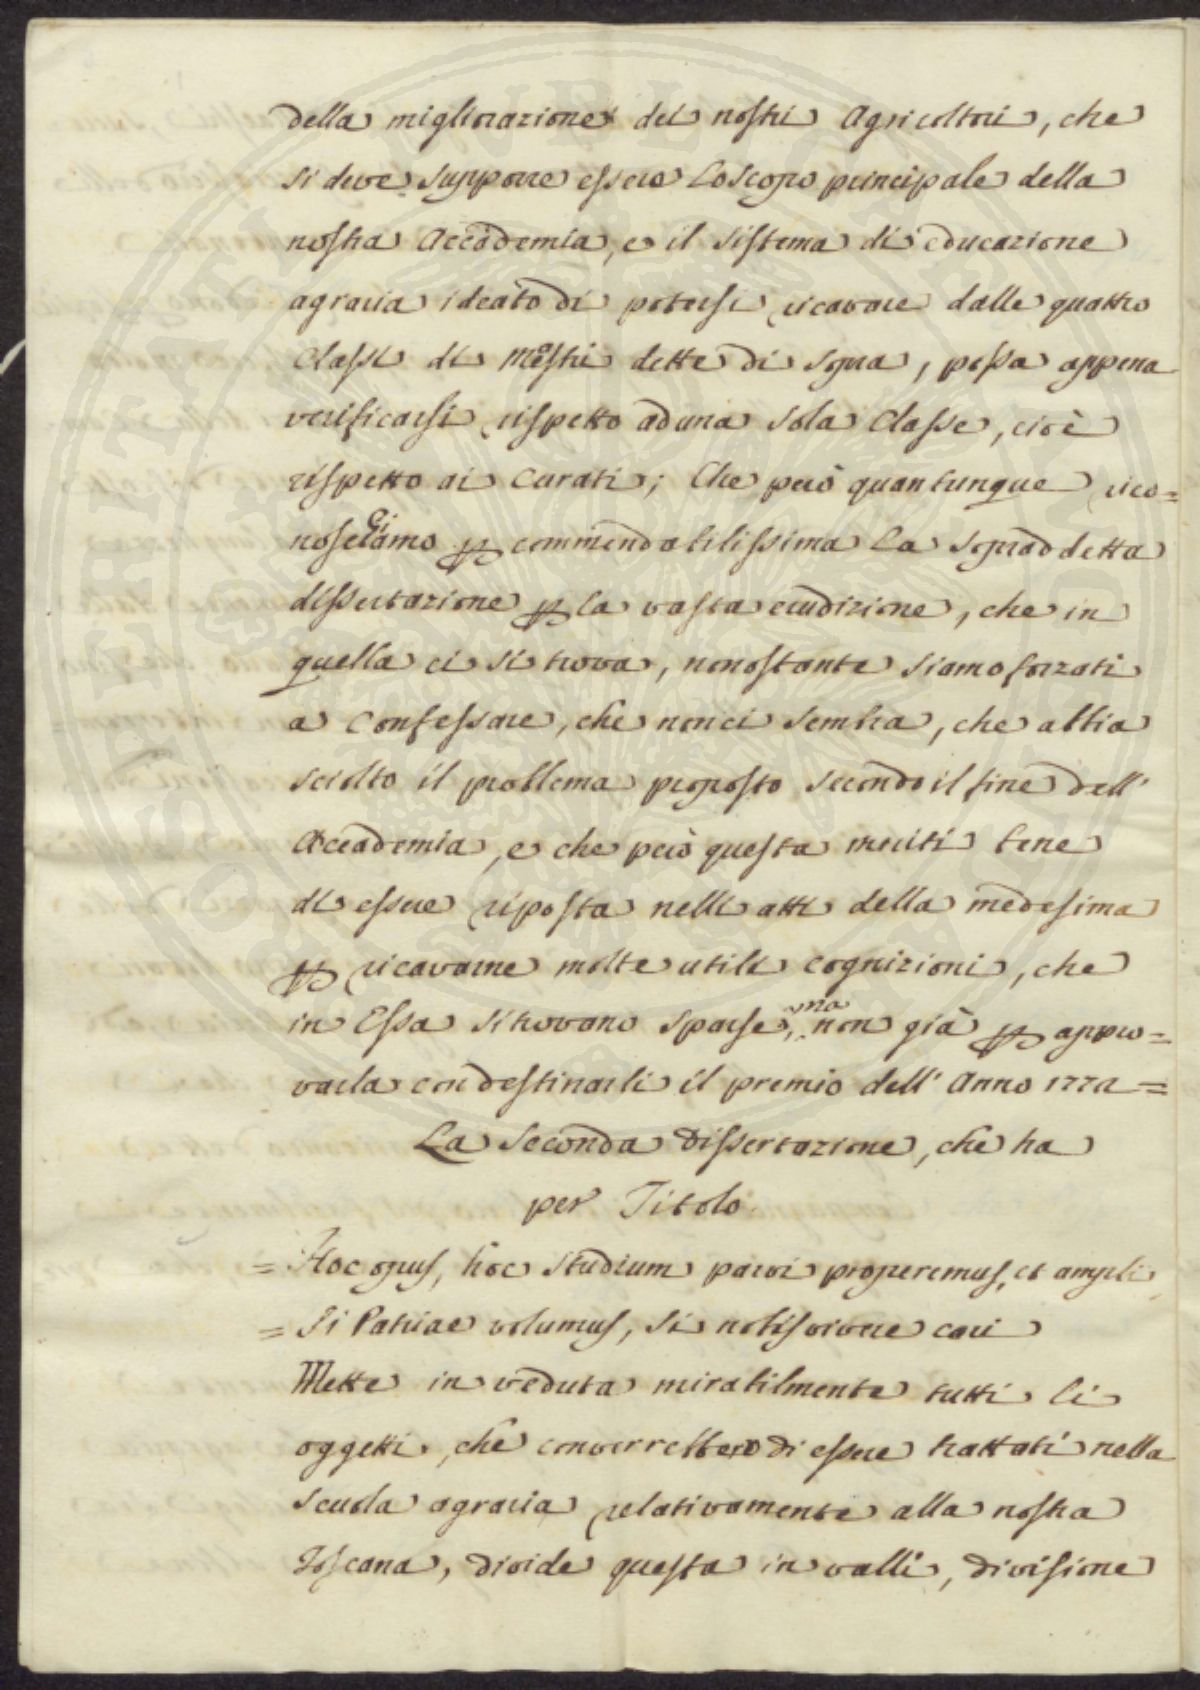 della migliorazione dei nostri Agricoltori, che
si deve supporre essere lo scopo principale della
nostra Accademia, e il sistema di educazione
agraria ideato di potersi ricavare dalle quattro
Classi di Mestri dette di sopra, possa appena
verificarsi rispetto ad una sola Classe, cioè
rispetto ai Curati; Che però quantunque rico=
nosciamo p commendabilissima la sopraddetta
dissertazione p la vasta erudizione, che in
quella ci si trova, nonostante siamo forzati
a Confessare, che non ci sembra, che abbia
sciolto il problema proposto secondo il fine dell'
Accademia, e che però questa meriti bene
di essere riposta nelli atti della medesima
p ricavarne molte utili cognizioni, che
in Essa si trovano sparse, ma non già p appro=
varla con destinarli il premio dell' Anno 1772=
La Seconda Dissertazione, che ha
per Titolo
= Hoc opus, hoc studium parvi properemus, et ampli
= Si Patriae volumus, si nobis vivere cari
Mette in veduta mirabilmente tutti li
oggetti, che converrebbero di essere trattati nella
Scuola agraria relativamente alla nostra
Toscana, divide questa in valli, divisione
SOSPERITATI PUBLICAE AUGENDAE